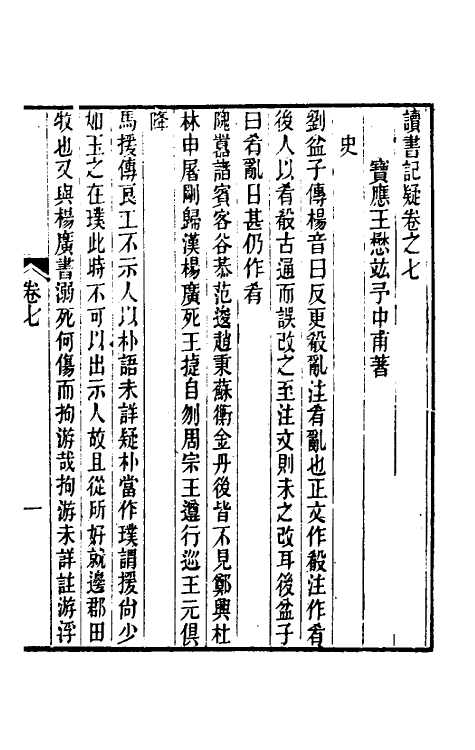 讀書記疑卷之七
寶應王懋竑予中甫著
史
劉盆子傳楊音曰反更殽亂注肴亂也正文作殽注作肴
後人以肴殽古通而誤改之至注文則未之改耳後盆子
曰肴亂日甚仍作肴
隗囂諸賓客谷恭范逡趙秉蘇衡金丹後皆不見鄭興杜
林申屠剛歸漢楊廣死王捷自刎周宗王遵行巡王元俱
降
馬援傳良工不示人以朴語未詳疑朴當作璞謂援尙少
如玉之在璞此時不可以出示人故且從所好就邊郡田
牧也又與楊廣書溺死何傷而拘游哉拘游未詳註游浮
卷七
一